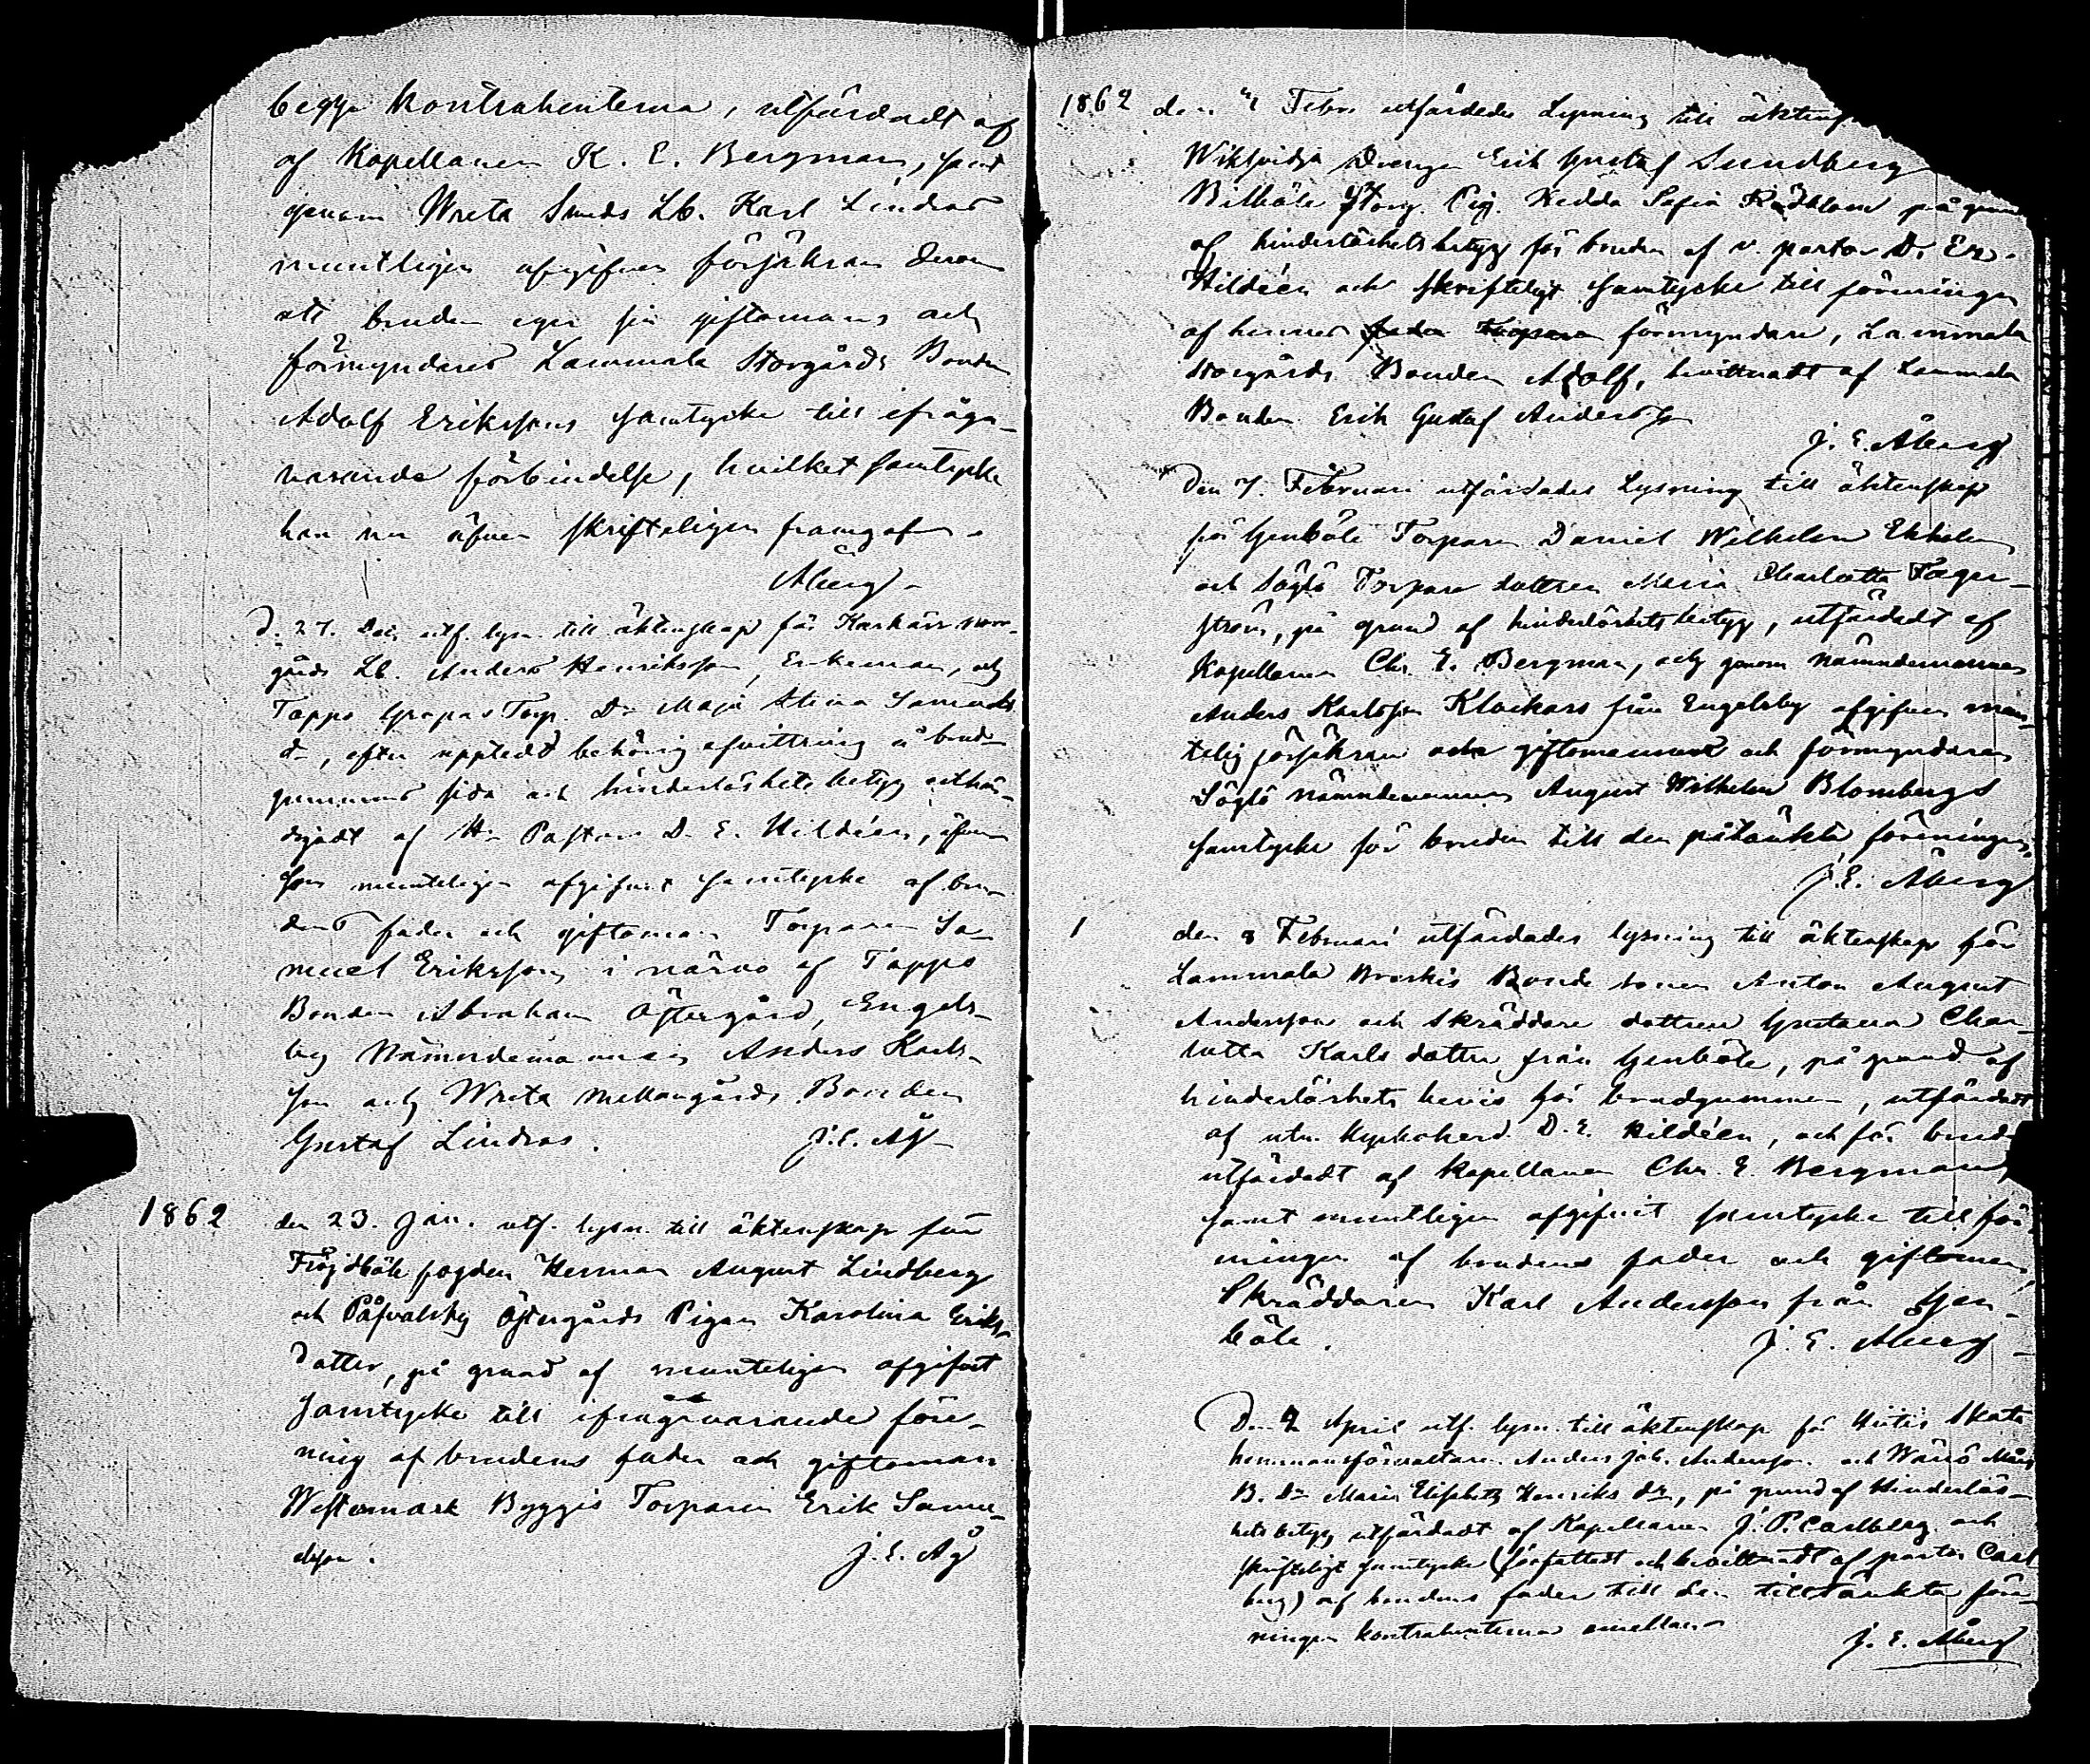 begge kontrahenterna, utfärdadt af
af Kapellanen K. E. Bergman, samt
genom Wreta Smeds Lb. Karl Lindros
muntligen afgifven försäkran derom
att bruden eger sin giftomans och
förmyndares Lammala Storgårds Bonden
Adolf Erikssons samtycke till ifråga-
varande förbindelse, hvilket samtycke
han nu äfven skrifteligen framgaf.
Åberg.
D. 27. Dec. utf. lysn. till äktenskap för Karkärr norr-
gårds Lb. Anders Henriksson Enkeman, och
Tappo Grapas Torp. Dr Maja Stina Samuels
dr, efter uppteedt behörig afvittring å brud-
gummens sida och hinderlöshets betyg
af Hr Pastor D. E. Hildéen, äfven
som munteligen afgifvet samtycke af bru-
dens fader och giftoman Torparen Sa-
muel Eriksson, i närvo af Tappo
Bonden Abraham Östergård, Engels-
by Nämndemannen Anders Karls-
son och Wreta Mellangårds Bonden
Gustaf Lindros. J. E. Åg
1862 den 23. Jan. utf. lysn. till äktenskap för
Fröjdböle fogden Herman August Lindberg
och Påfvalsby Östergårds Pigan Karolina Eriks-
dotter, på grund af munteligen afgifvet
samtycke till ifrågavarande före-
ning af brudens fader och giftoman
Westermark Byggis Torparen Erik Samu-
elsson. J. E. Åg
1862 den 4 Febr. utfärdades Lysning till äktensk
Drengen Erik Gustaf Sundberg
Bilböle Pig. Hedda Sofia Rådblom på grund
af hinderlöshets betyg för bruden af v. pastor D. Em.
Hildéen och skrifteligt samtycke till föreningen
af hennes förmyndare, Lammala
Storgårds Bonden Adolf, bevittnadt af Lammala
Bonden Erik Gustaf Andersson
J. E. Åberg
Den 7. Februari utfärdades Lysning till äktenskap
för Genböle Torparen Daniel Wilhelm Ekholm
och Söglö Torpare dottren Maria Charlotta Fager-
ström, på grund af hinderlöshets betyg, utfärdadt af
Kapellanen Chr. E. Bergman, och genom nämndemannen
Anders Karlsson Klockars från Engelsby afgifven mun-
telig försäkran och giftomannens och förmyndaren
Söglö nämndemannen August Wilhelm Blombergs
samtycke för bruden till den påtänkta föreningen.
J. E. Åberg
1 den 8 Februari utfärdades lysning till äktenskap för
Lammala Broskis Bonde sonen Anton August
Andersson och Skräddare dottren Gustava Char-
lotta Karls dotter från Genböle, på grund af
hinderlöshets bevis för brudgummen, utfärdadt
af utn. Kyrkoherd. D. E. Hildéen, och för bruden
utfärdadt af Kapellanen Chr. E. Bergman,
samt muntligen afgifvit samtycke till före-
ningen af brudens fader och giftoman,
Skräddaren Karl Andersson från Gen-
böle. J. E. Åberg
Den 2 April utf. lysn. till äktenskap för Hitis Skatte
hemmansförvaltare Anders Joh. Andersson och Wänö Måns
B. Dr Maria Elisabeth Henriks dr, på grund af Hinderlös-
hets betyg utfärdadt af Kapellanen J. P. Carlberg och
skrifteligt samtycke (författadt och bevittnadt af pastor Carl-
berg) af brudens fader till den tilltänkta före-
ningen kontrahenterna emellan
J. E. Åberg